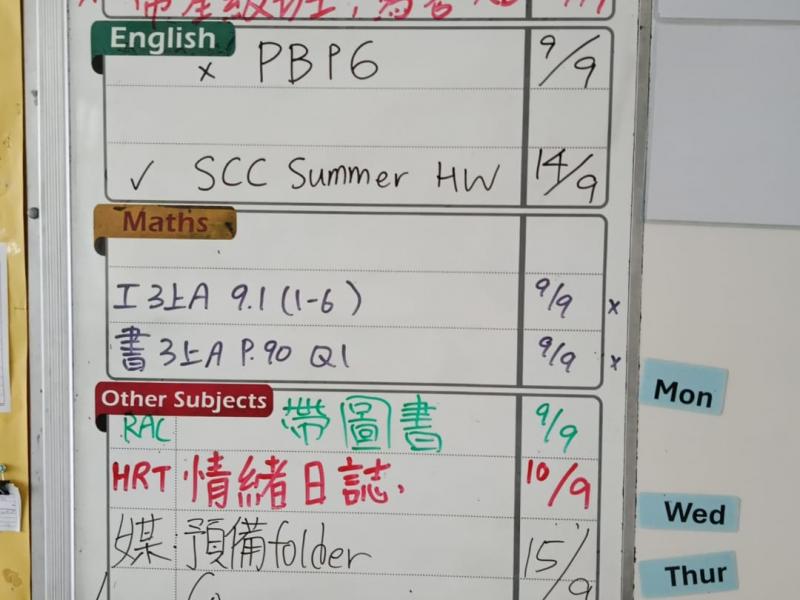 English
x PBP6 9/9
✓ SCC Summer HW 14/9
Maths
工3上A 9.1 (1-6) 9/9 x
書3上A P.90 Q1 9/9 x
Other Subjects
RAC 帶圖書 9/9
HRT 情緒日誌, 10/9
媒:預備folder 15/9
Mon
Wed
Thur